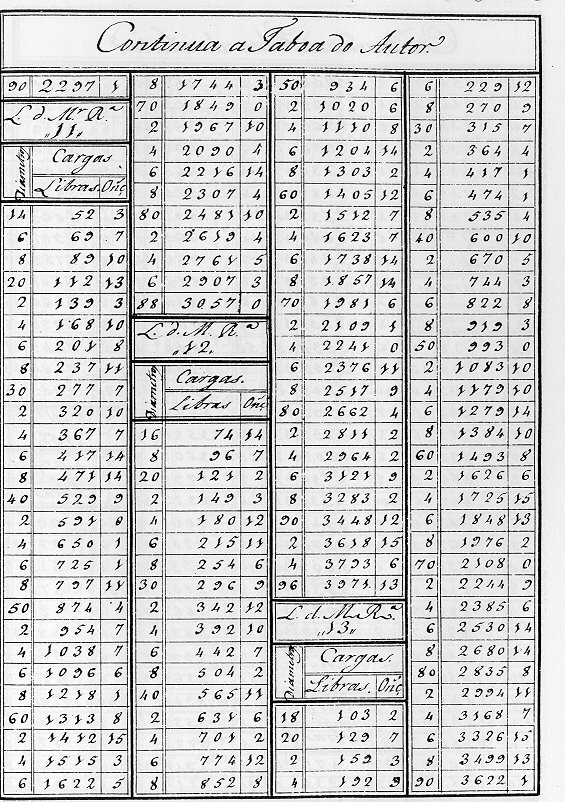 Continua a Taboa do Autor
90 2297 1
L. d. Mr. Rª.
"11"
Diametros Cargas.
Libras. Onç
14 52 3
6 69 7
8 89 10
20 112 13
2 139 3
4 168 10
6 201 8
8 237 11
30 277 7
2 320 10
4 367 7
6 417 14
8 471 14
40 529 9
2 591 0
4 650 1
6 725 1
8 797 11
50 874 4
2 954 7
4 1038 7
6 1096 6
8 1218 1
60 1313 8
2 1412 15
4 1515 3
6 1622 5
8 1744 3
70 1849 0
2 1967 10
4 2090 4
6 2216 14
8 2307 4
80 2481 10
2 2619 4
4 2761 5
6 2907 3
88 3057 0
L. d. M. Rª.
"12"
Diametros Cargas.
Libras Onç
16 74 14
8 96 7
20 121 2
2 149 3
4 180 12
6 215 11
8 254 6
30 296 9
2 342 12
4 392 10
6 442 7
8 504 2
40 565 11
2 631 6
4 701 2
6 774 12
8 852 8
50 934 6
2 1020 6
4 1110 8
6 1204 14
8 1303 2
60 1405 12
2 1512 7
4 1623 7
6 1738 14
8 1857 14
70 1981 6
2 2109 1
4 2241 0
6 2376 11
8 2517 9
80 2662 4
2 2811 2
4 2964 2
6 3121 9
8 3283 2
90 3448 12
2 3618 15
4 3793 6
96 3971 13
L. d. M. Rª.
"13"
Diametros Cargas.
Libras. Onç
18 103 2
20 129 7
2 159 3
4 192 9
6 229 12
8 270 9
30 315 7
2 364 4
4 417 1
6 474 1
8 535 4
40 600 10
2 670 5
4 744 3
6 822 8
8 919 3
50 993 0
2 1083 10
4 1179 10
6 1279 14
8 1384 10
60 1493 8
2 1626 6
4 1725 15
6 1848 13
8 1976 2
70 2108 0
2 2244 9
4 2385 6
6 2530 14
8 2680 14
80 2835 8
2 2994 11
4 3168 7
6 3326 15
8 3499 13
90 3622 1